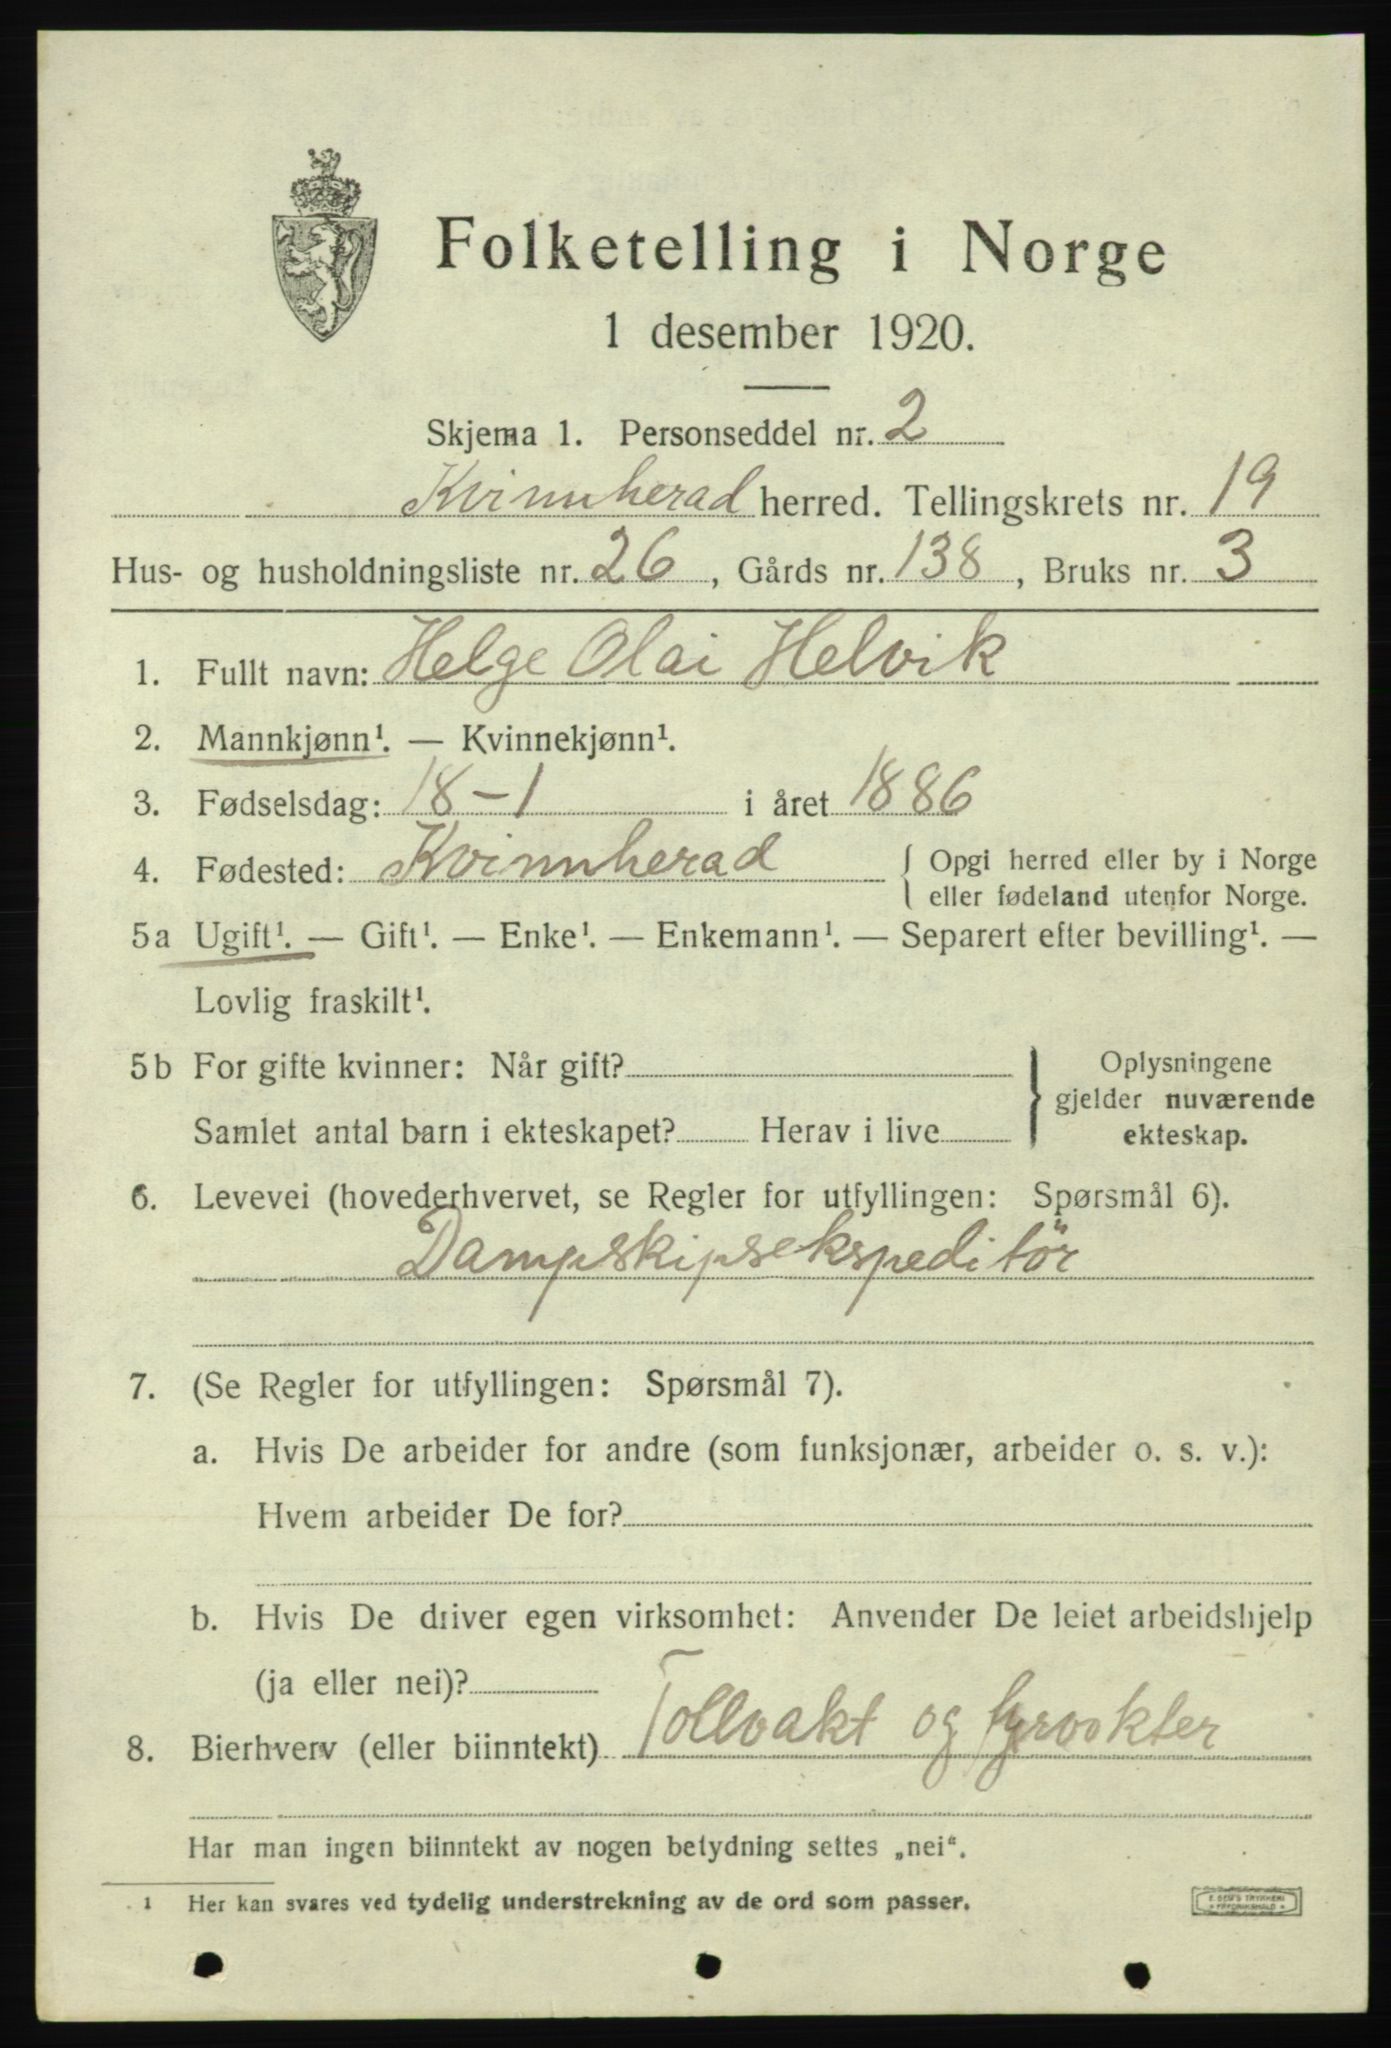 Folketelling i Norge
1 desember 1920.
Skjema 1. Personseddel nr. 2
Kvinnherad herred. Tellingskrets nr. 19
Hus- og husholdningsliste nr. 26, Gårds nr. 138, Bruks nr. 3
1. Fullt navn: Helge Olai Helvik
2. Mannkjønn¹. — Kvinnekjønn¹.
3. Fødselsdag: 18-1 i året 1886
4. Fødested: Kvinnherad { Opgi herred eller by i Norge
eller fødeland utenfor Norge.
5a Ugift¹. — Gift¹. — Enke¹. — Enkemann¹. — Separert efter bevilling¹. —
Lovlig fraskilt¹.
5b For gifte kvinner: Når gift? } Oplysningene
gjelder nuværende
Samlet antal barn i ekteskapet? Herav i live ekteskap.
6. Levevei (hovederhvervet, se Regler for utfyllingen: Spørsmål 6).
Dampskipsekspeditør
7. (Se Regler for utfyllingen: Spørsmål 7).
a. Hvis De arbeider for andre (som funksjonær, arbeider o. s. v.):
Hvem arbeider De for?
b. Hvis De driver egen virksomhet: Anvender De leiet arbeidshjelp
(ja eller nei)?
8. Bierhverv (eller biinntekt) Tollvakt og fyrvokter
Har man ingen biinntekt av nogen betydning settes „nei“.
1 Her kan svares ved tydelig understrekning av de ord som passer.